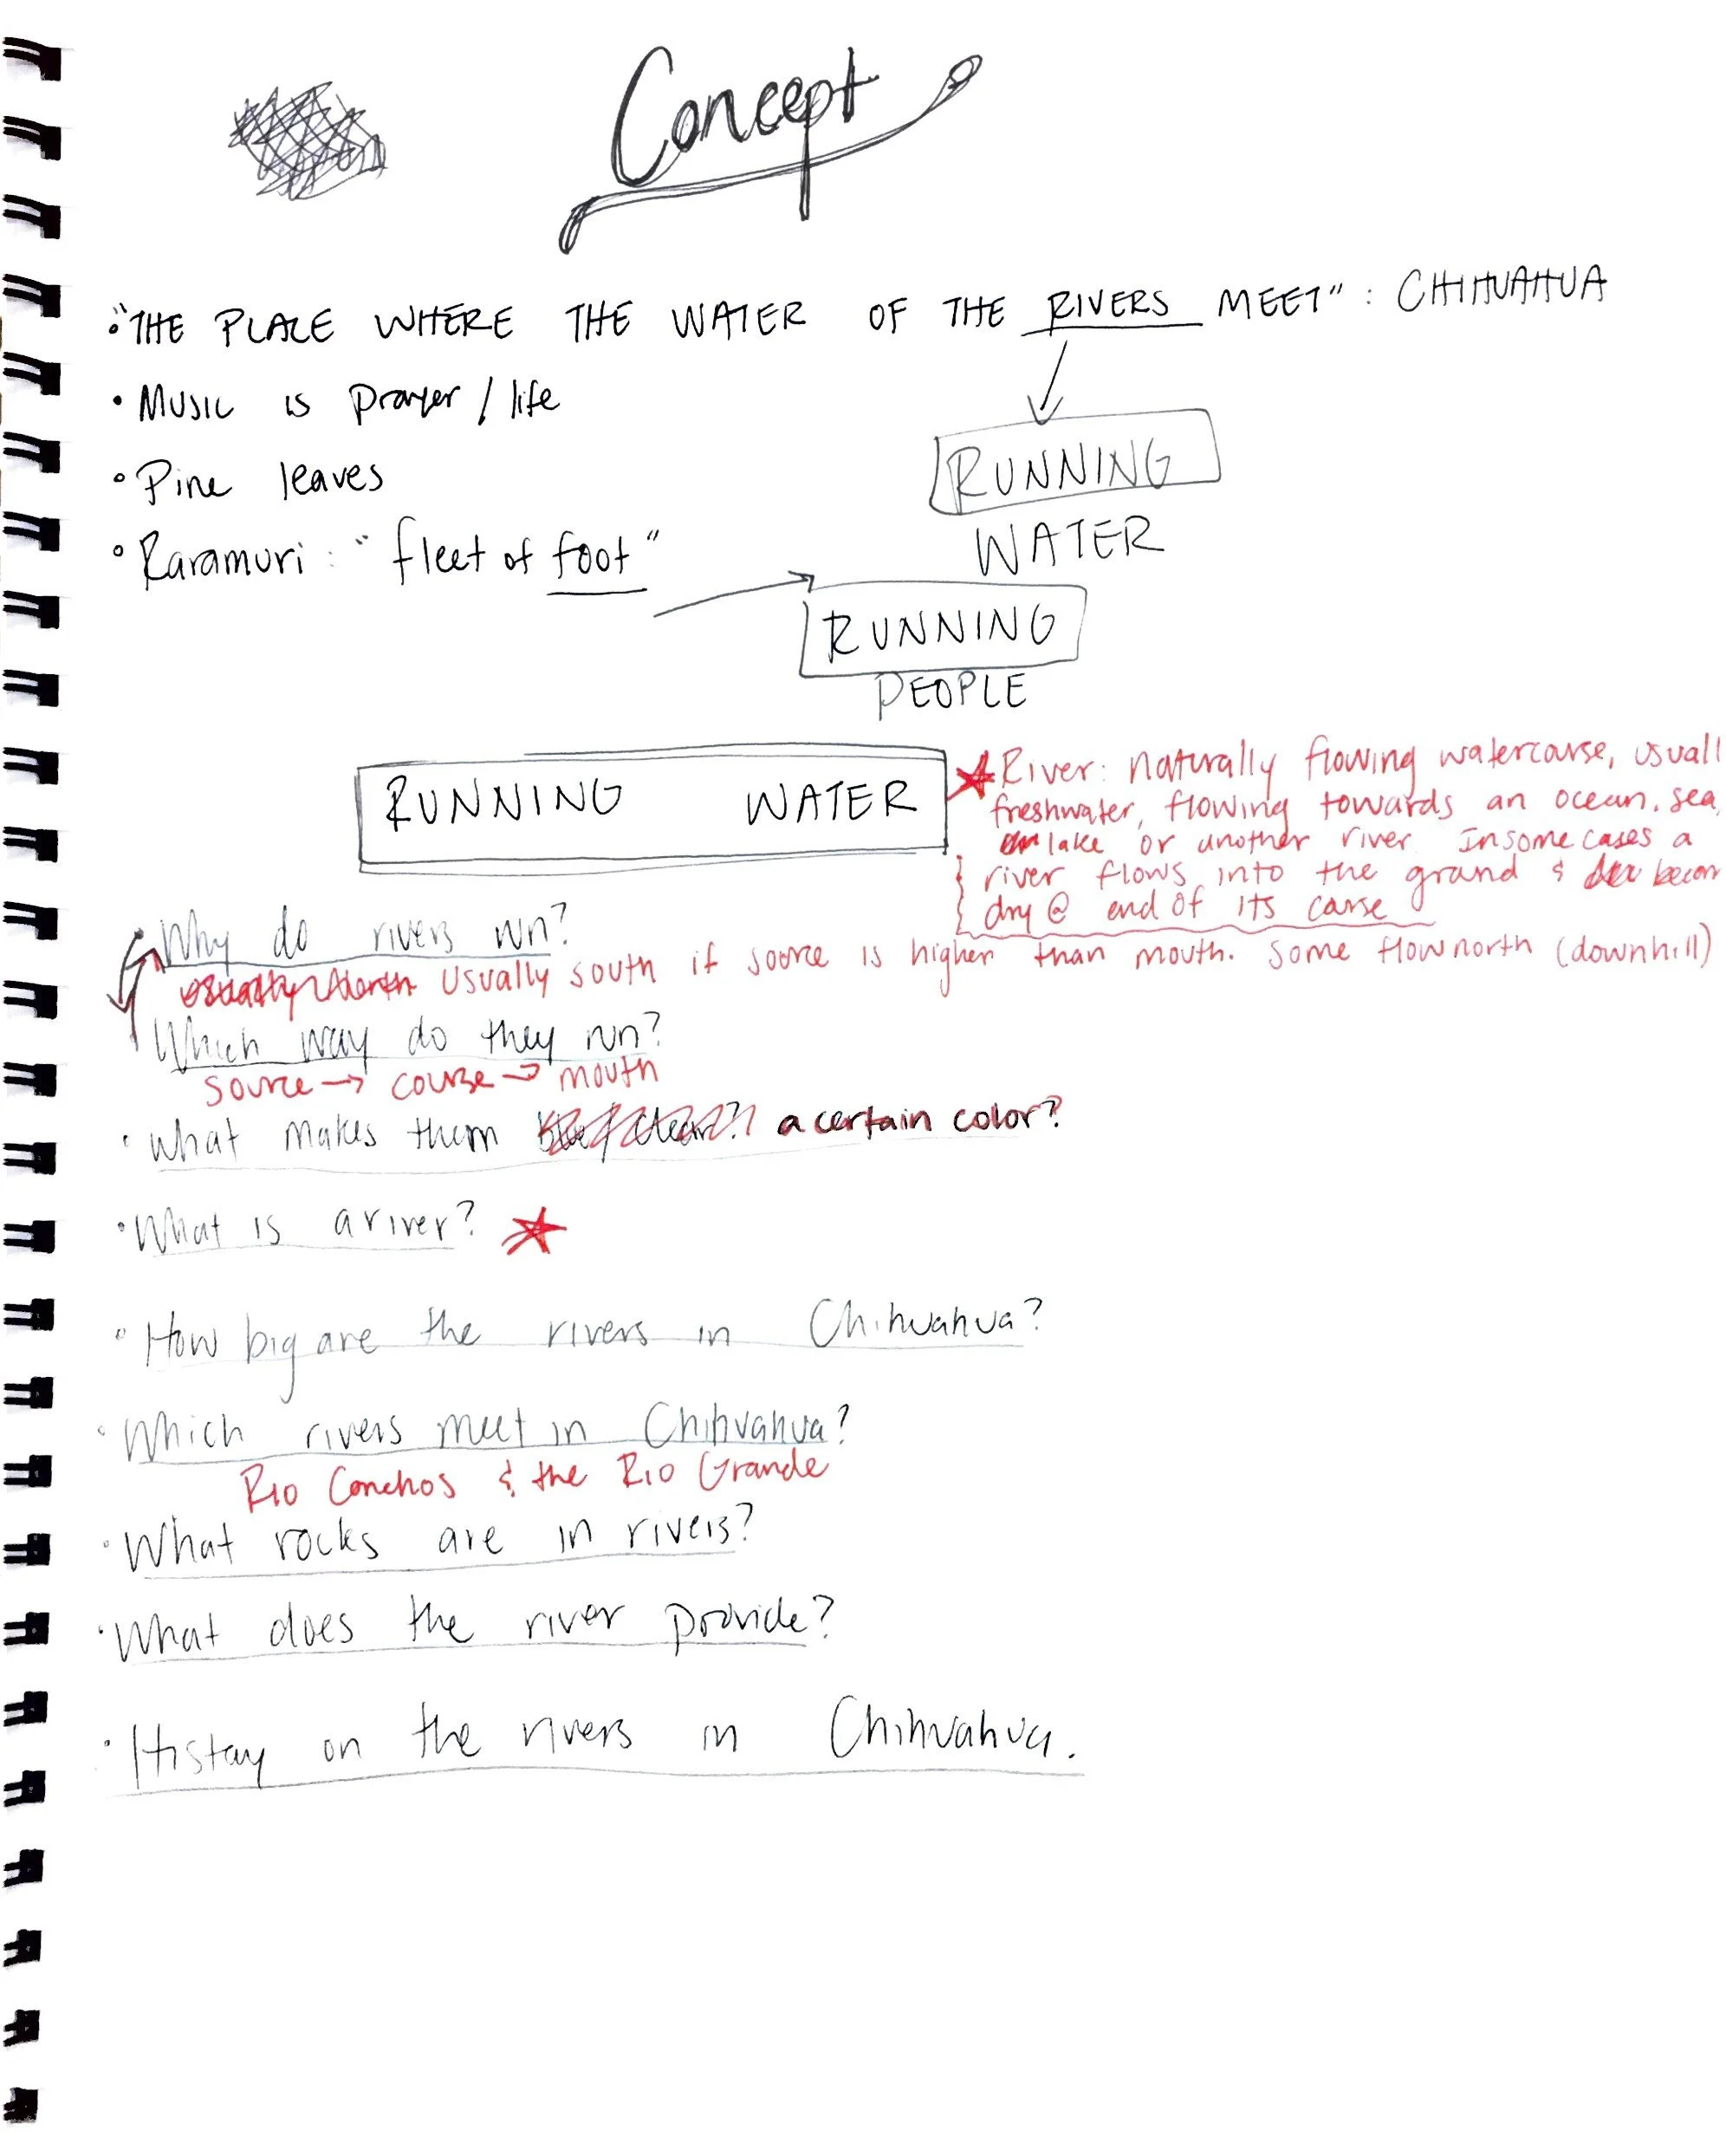 Concept
• "THE PLACE WHERE THE WATER OF THE RIVERS MEET" : CHIHUAHUA
• MUSIC is prayer / life
• Pine leaves
• Raramuri : "fleet of foot"
RUNNING
WATER
RUNNING
PEOPLE
RUNNING WATER
River: naturally flowing watercourse, usuall
freshwater, flowing towards an ocean. sea,
lake or another river. In some cases a
river flows into the ground & becom
dry @ end of its course
• Why do rivers run?
Usually North Usually south if source is higher than mouth. Some flow north (downhill)
Which way do they run?
Source → course → mouth
• What makes them blue/clear? a certain color?
• What is a river?
• How big are the rivers in Chihuahua?
• Which rivers meet in Chihuahua?
Rio Conchos & the Rio Grande
• What rocks are in rivers?
• What does the river provide?
• History on the rivers in Chihuahua.